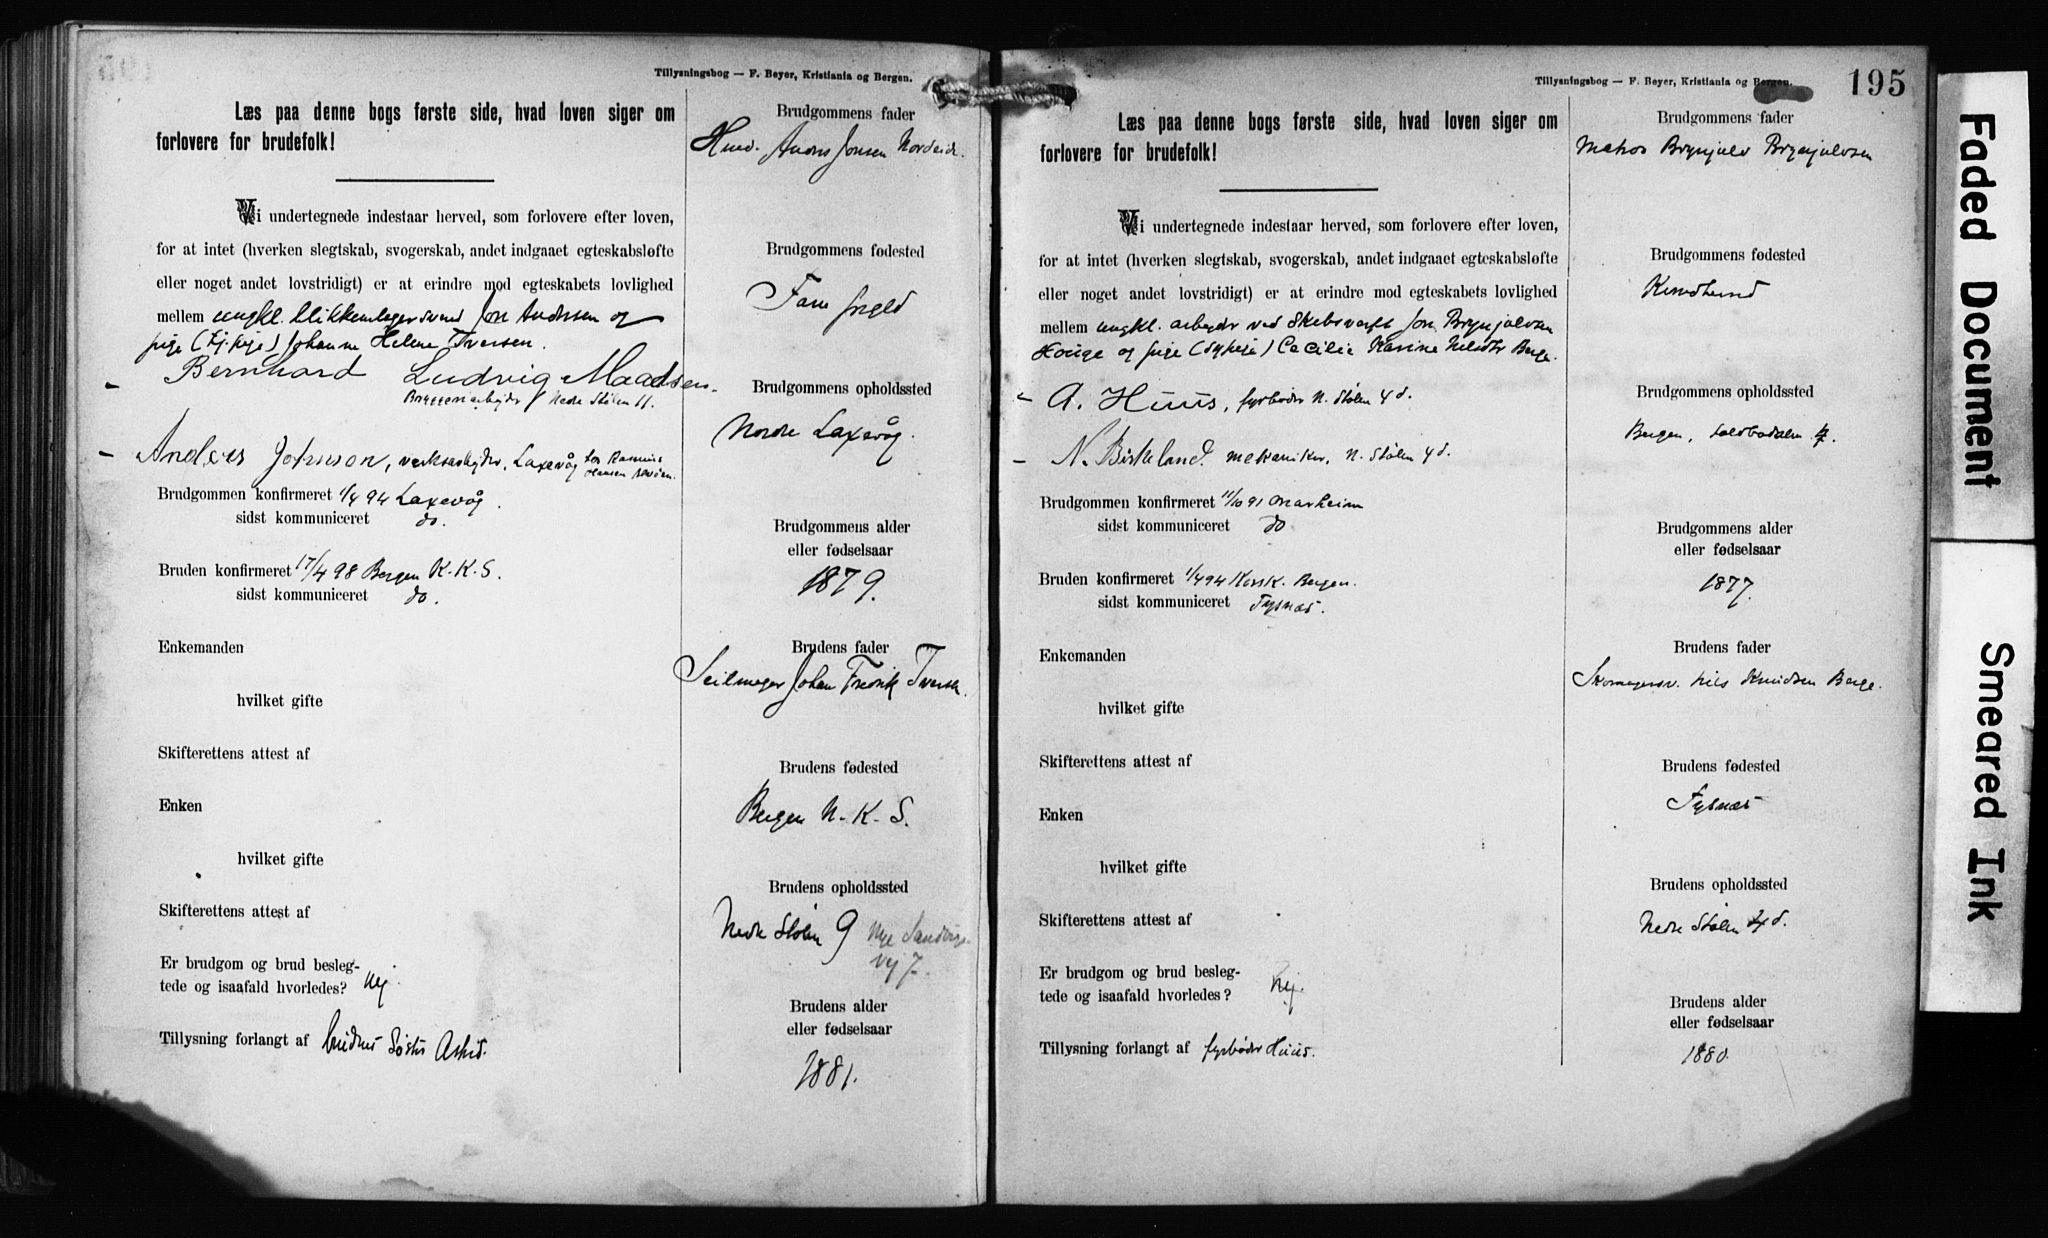 Tillysningsbog — F. Beyer, Kristiania og Bergen.
Læs paa denne bogs første side, hvad loven siger om
forlovere for brudefolk!
Vi undertegnede indestaar herved, som forlovere efter loven,
for at intet (hverken slegtskab, svogerskab, andet indgaaet egteskabsløfte
eller noget andet lovstridigt) er at erindre mod egteskabets lovlighed
mellem ungkl. blikkenslagersvend Jon Andersen og
pige (tj.pige) Johanne Helene Iversen.
Bernhard Ludvig Madsen.
Bryggeriarbejder Nedre Stølen 11.
Anders Johnson, verksarbejder, Laxevåg hos Rasmus
Hansen
Brudgommen konfirmeret 1/4 94 Laxevåg.
sidst kommuniceret do.
Bruden konfirmeret 17/4 98 Bergen K.K.S.
sidst kommuniceret do.
Enkemanden
hvilket gifte
Skifterettens attest af
Enken
hvilket gifte
Skifterettens attest af
Er brudgom og brud besleg-
tede og isaafald hvorledes? Nej.
Tillysning forlangt af brudens Søster Astrid.
Brudgommens fader
Husm. Anders Jonsen Nordeide.
Brudgommens fødested
Fane prgld
Brudgommens opholdssted
Nordre Laxevåg.
Brudgommens alder
eller fødselsaar
1879.
Brudens fader
Seilmager Johan Fredrik Iversen.
Brudens fødested
Bergen N.K.S.
Brudens opholdssted
Nedre Stølen 9 Nye Sandvigs-
vej 7.
Brudens alder
eller fødselsaar
1881.
Tillysningsbog — F. Beyer, Kristiania og Bergen.
195
Læs paa denne bogs første side, hvad loven siger om
forlovere for brudefolk!
Vi undertegnede indestaar herved, som forlovere efter loven,
for at intet (hverken slegtskab, svogerskab, andet indgaaet egteskabsløfte
eller noget andet lovstridigt) er at erindre mod egteskabets lovlighed
mellem ungkl. arbejder ved Skibsverft Jon Brynjulvsen
Houge og pige (sypige) Cecilie Karine Nilsdtr Berge.
A. Huus, fyrbøder N. Stølen 4 d.
N. Birkeland. mekaniker, N. Stølen 4 d.
Brudgommen konfirmeret 11/10 91 Norheim
sidst kommuniceret do
Bruden konfirmeret 1/4 94 Korsk. Bergen.
sidst kommuniceret Tysnæs.
Enkemanden
hvilket gifte
Skifterettens attest af
Enken
hvilket gifte
Skifterettens attest af
Er brudgom og brud besleg-
tede og isaafald hvorledes? Nej.
Tillysning forlangt af fyrbøder Huus.
Brudgommens fader
Matros Brynjulv Brynjulvsen
Brudgommens fødested
Kvindherred
Brudgommens opholdssted
Bergen,
Brudgommens alder
eller fødselsaar
1877.
Brudens fader
Skomagersv. Nils Knudsen Berge.
Brudens fødested
Tysnæs
Brudens opholdssted
Nedre Stølen 4 d.
Brudens alder
eller fødselsaar
1880.
Faded Document
Smeared Ink